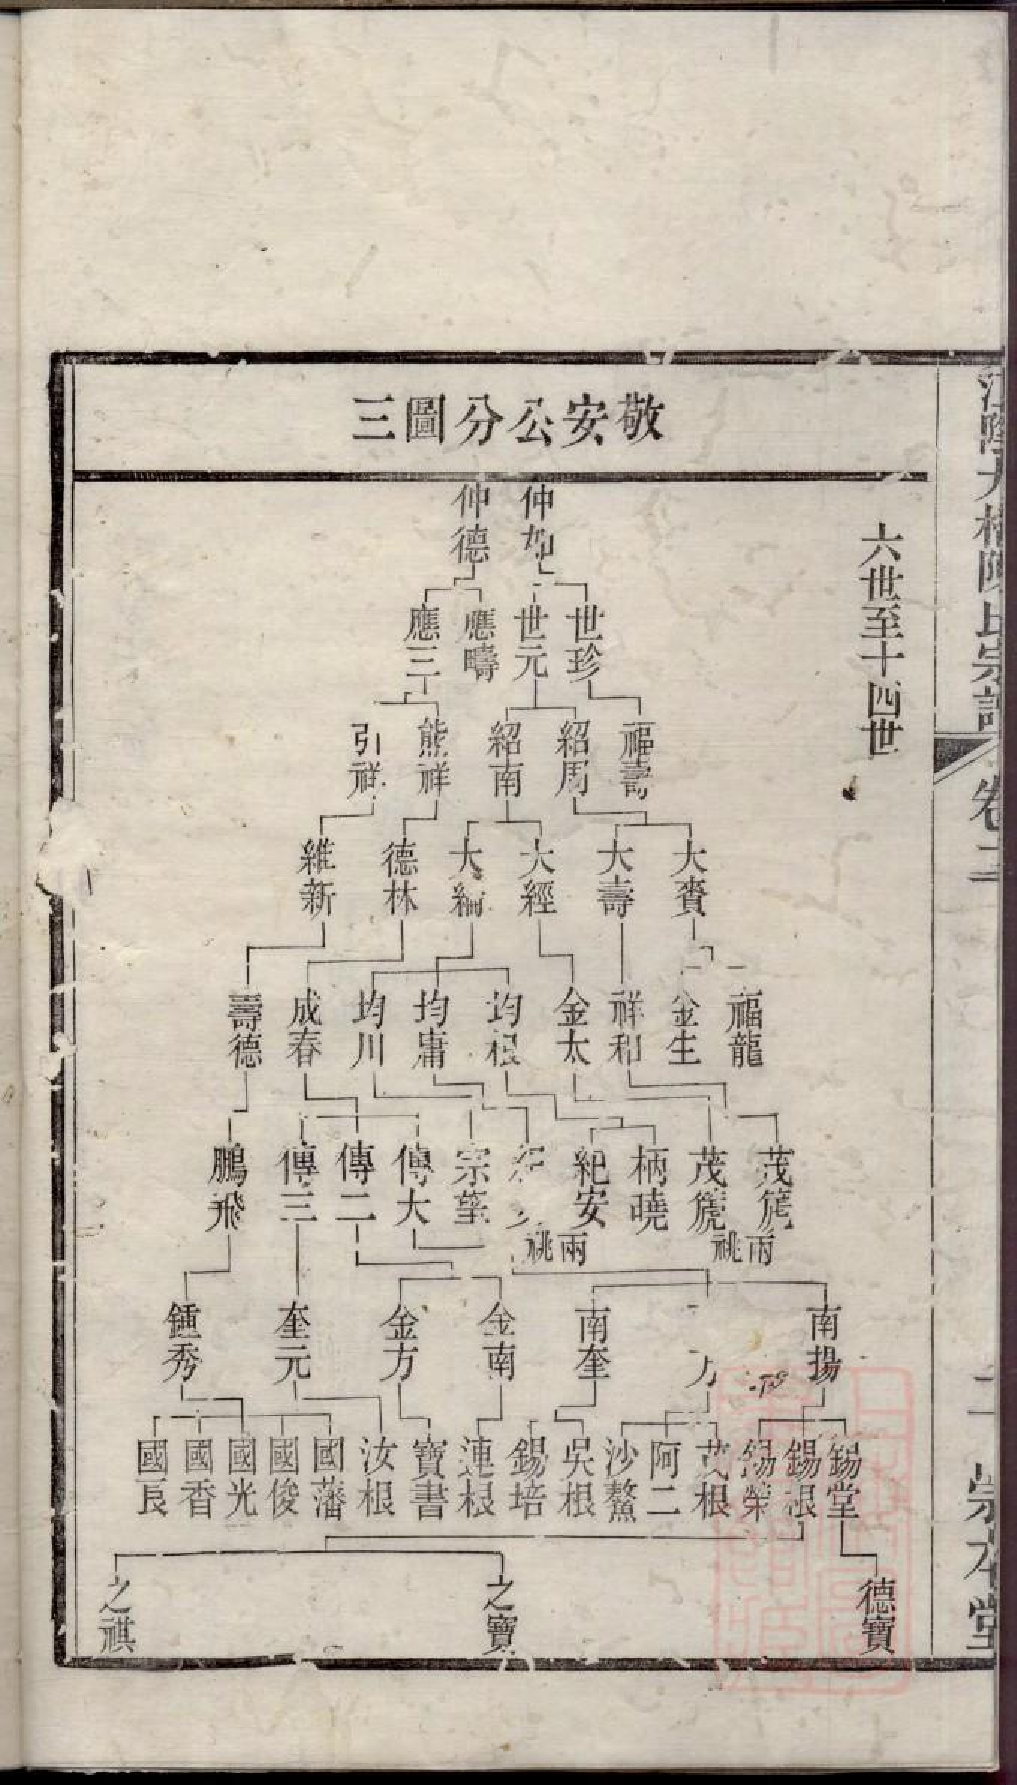 敬安公分圖三
六世至十四世
仲如 仲德
世珍 世元 應疇 應三
福壽 紹周 紹南 熊祥 引祥
大賚 大壽 大經 大綸 德林 維新
福龍 金生 祥和 金太 均根 均庸 均川 成春 壽德
茂篪 茂箎 柄曉 紀安 宗 傳大 傳二 傳三 鵬飛
兩祧 兩祧
南揚 方 南奎 金南 金方 奎元 鍾秀
錫堂 錫根 錫榮 茂根 阿二 沙鰲 吳根 錫培 連根 寶書 汝根 國藩 國俊 國光 國香 國良
德寶 之寶 之祺
卷二
二 崇本堂